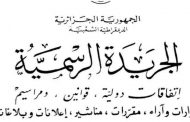 الجمهورية الجزائرية
الديمقراطية الشعبية
الجريدة الرسمية
اتفاقات دولية ، قوانين ، ومراسيم
رارات وآراء ، مقررات ، مناشير ، إعلانات وبلاغات